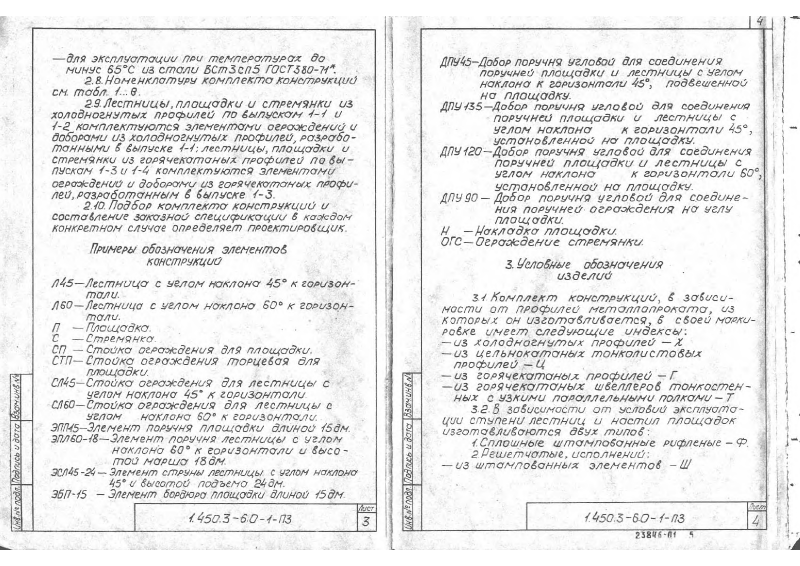 —для эксплуатации при температурах до
минус 65°С из стали ВСт3сп5 ГОСТ380-71*.
2.8. Номенклатуру комплекта конструкций
см. табл. 1...8.
2.9. Лестницы, площадки и стремянки из
холодногнутых профилей по выпускам 1-1 и
1-2 комплектуются элементами ограждений и
доборами из холодногнутых профилей, разрабо-
танными в выпуске 1-1; лестницы, площадки и
стремянки из горячекатаных профилей по вы-
пускам 1-3 и 1-4 комплектуются элементами
ограждений и доборами из горячекатаных профи-
лей, разработанным в выпуске 1-3.
2.10. Подбор комплекта конструкций и
составление заказной спецификации в каждом
конкретном случае определяет проектировщик.
Примеры обозначения элементов
конструкций
Л45—Лестница с углом наклона 45° к горизон-
тали.
Л60—Лестница с углом наклона 60° к горизон-
тали.
П —Площадка.
С —Стремянка.
СП —Стойка ограждения для площадки.
СТП—Стойка ограждения торцевая для
площадки.
СЛ45—Стойка ограждения для лестницы с
углом наклона 45° к горизонтали.
СЛ60—Стойка ограждения для лестницы с
углом наклона 60° к горизонтали.
ЭПП15—Элемент поручня площадки длиной 15дм.
ЭПЛ60-18—Элемент поручня лестницы с углом
наклона 60° к горизонтали и высо-
той марша 18дм.
ЭСЛ45-24—Элемент струны лестницы с углом наклона
45° и высотой подъема 24дм.
ЭБП-15 — Элемент бордюра площадки длиной 15дм.
Инв.№ подл. Подпись и дата Взам.инв.№
1.450.3-6.0-1-ПЗ
Лист
3
4
ДПУ45—Добор поручня угловой для соединения
поручней площадки и лестницы с углом
наклона к горизонтали 45°, подвешенной
на площадку.
ДПУ135—Добор поручня угловой для соединения
поручней площадки и лестницы с
углом наклона к горизонтали 45°,
установленной на площадку.
ДПУ120—Добор поручня угловой для соединения
поручней площадки и лестницы с
углом наклона к горизонтали 60°,
установленной на площадку.
ДПУ90 — Добор поручня угловой для соедине-
ния поручней ограждения на углу
площадки.
Н —Накладка площадки.
ОГС—Ограждение стремянки.
3. Условные обозначения
изделий
3.1. Комплект конструкций, в зависи-
мости от профилей металлопроката, из
которых он изготавливается, в своей марки-
ровке имеет следующие индексы:
—из холодногнутых профилей —Х
—из цельнокатаных тонколистовых
профилей —Ц
—из горячекатаных профилей—Г
—из горячекатаных швеллеров тонкостен-
ных с узкими параллельными полками—Т
3.2. В зависимости от условий эксплуата-
ции ступени лестниц и настил площадок
изготавливаются двух типов:
1. Сплошные штампованные рифленые —Ф.
2. Решетчатые, исполнений:
—из штампованных элементов —Ш
Инв.№ подл. Подпись и дата Взам.инв.№
1.450.3-6.0-1-ПЗ
Лист
4
23846-01 5